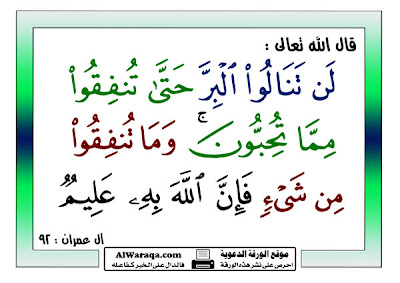 قال الله تعالى :
لَن تَنَالُوا۟ ٱلْبِرَّ حَتَّىٰ تُنفِقُوا۟
مِمَّا تُحِبُّونَ ۚ وَمَا تُنفِقُوا۟
مِن شَىْءٍ فَإِنَّ ٱللَّهَ بِهِۦ عَلِيمٌ
آل عمران : ٩٢
موقع الورقة الدعوية
احرص على نشر هذه الورقة
AlWaraqa.com
فالدال على الخير كفاعله